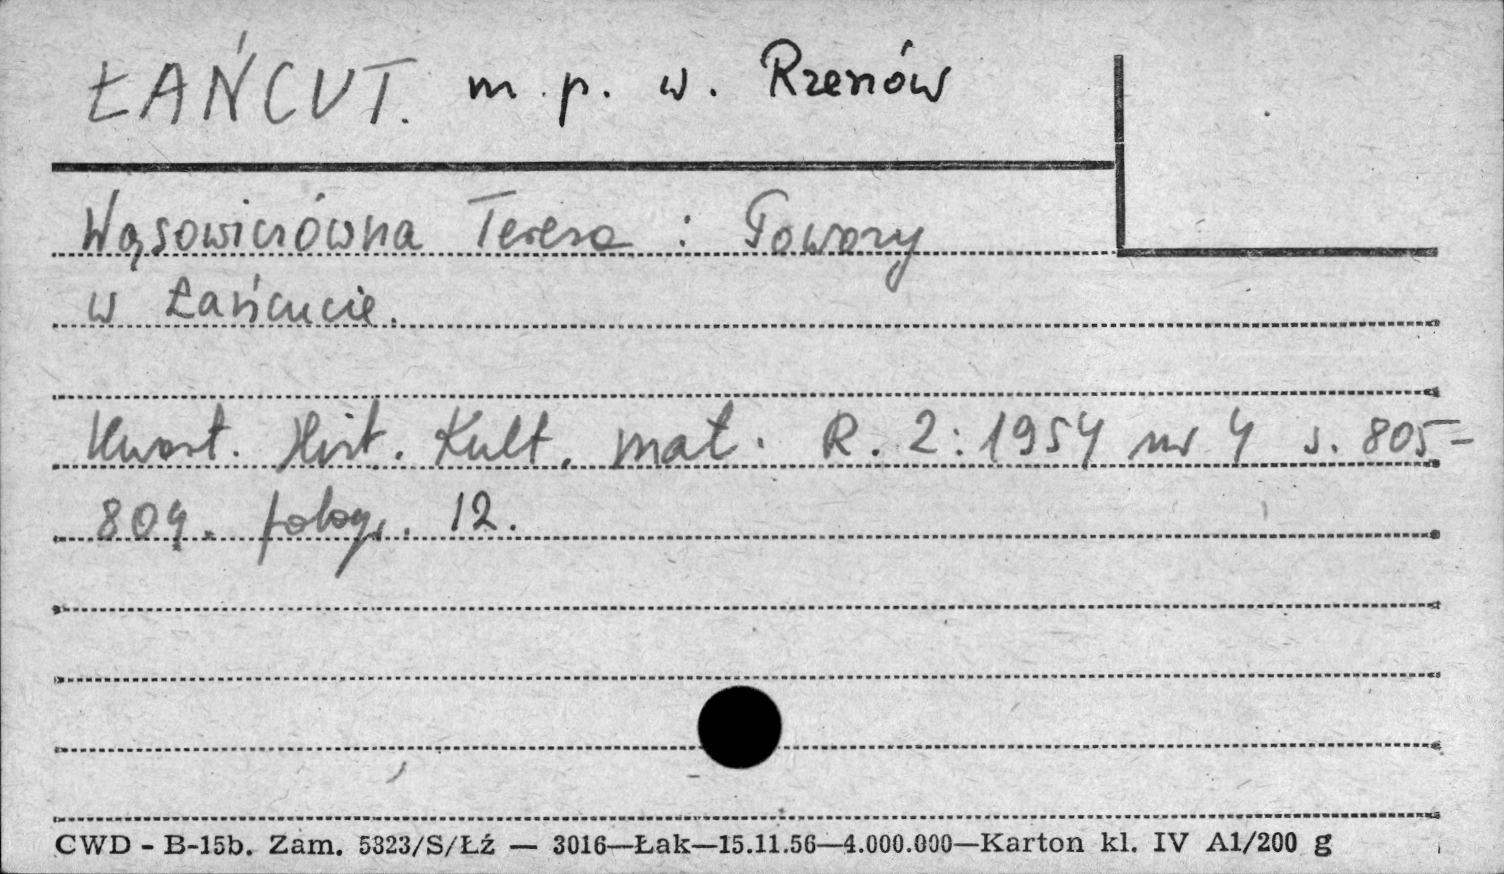 ŁAŃCUT. m. p. w. Rzeszów
Wąsowiczówna Teresa : Powozy
w Łańcucie.
Kwart. Hist. Kult. mat. R. 2: 1954 nr 4 s. 805-
809. fotogr. 12.
CWD - B-15b. Zam. 5323/S/Łź — 3016—Łak—15.11.56—4.000.000—Karton kl. IV A1/200 g